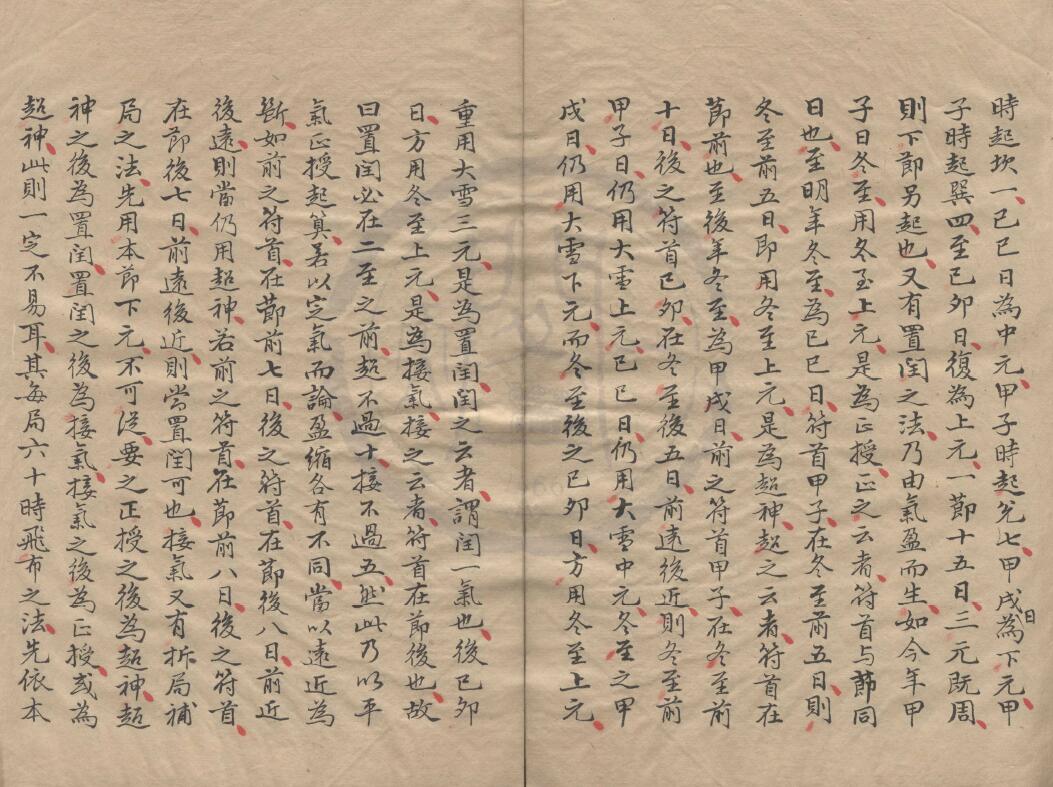 時起坎一己巳日為中元甲子時起兌七甲戌日為下元甲
子時起巽四至己卯日復為上元一節十五日三元既周
則下節另起也又有置閏之法乃由氣盈而生如今年甲
子日冬至用冬至上元是為正授正之云者符首与節同
日也至明年冬至為己巳日符首甲子在冬至前五日則
冬至前五日即用冬至上元是為超神超之云者符首在
節前也至後年冬至為甲戌日前之符首甲子在冬至前
十日後之符首己卯在冬至後五日前遠後近則冬至前
甲子日仍用大雪上元己巳日仍用大雪中元冬至之甲
戌日仍用大雪下元而冬至後之己卯日方用冬至上元
重用大雪三元是為置閏閏之云者謂閏一氣也後己卯
日方用冬至上元是為接氣接之云者符首在節後也故
曰置閏必在二至之前超不過十接不過五然此乃以平
氣正授起算若以定氣而論盈縮各有不同當以遠近為
斷如前之符首在節前七日後之符首在節後八日前近
後遠則當仍用超神若前之符首在節前八日後之符首
在節後七日前遠後近則當置閏可也接氣又有拆局補
局之法先用本節下元不可從要之正授之後為超神超
神之後為置閏置閏之後為接氣接氣之後為正授或為
超神此則一定不易耳其每局六十時飛布之法先依本